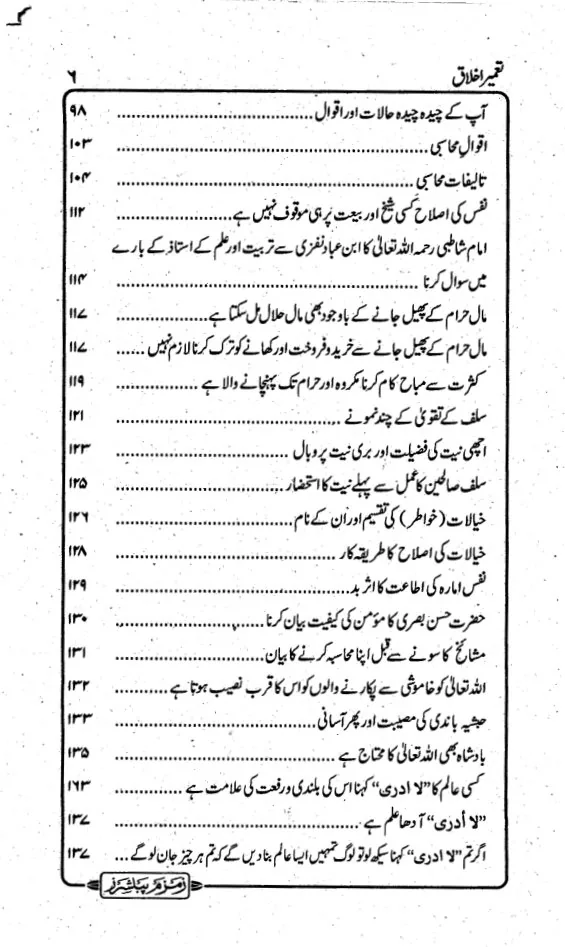 تعمیر اخلاق ۶
آپ کے چیدہ چیدہ حالات اور اقوال ........ ۹۸
اقوال محاسبی ........ ۱۰۳
تالیفات محاسبی ........ ۱۰۴
نفس کی اصلاح کسی شیخ اور بیعت پر ہی موقوف نہیں ہے ........ ۱۱۲
امام شاطبی رحمہ اللہ تعالیٰ کا ابن عباد نفزی سے تربیت اور علم کے استاذ کے بارے
میں سوال کرنا ........ ۱۱۴
مال حرام کے پھیل جانے کے باوجود بھی مال حلال مل سکتا ہے ........ ۱۱۷
مال حرام کے پھیل جانے سے خرید و فروخت اور کھانے کو ترک کرنا لازم نہیں ...... ۱۱۷
کثرت سے مباح کام کرنا مکروہ اور حرام تک پہنچانے والا ہے ........ ۱۱۹
سلف کے تقویٰ کے چند نمونے ........ ۱۲۱
اچھی نیت کی فضیلت اور بری نیت پر وبال ........ ۱۲۳
سلف صالحین کا عمل سے پہلے نیت کا استحضار ........ ۱۲۵
خیالات (خواطر) کی تقسیم اور ان کے نام ........ ۱۲۶
خیالات کی اصلاح کا طریقہ کار ........ ۱۲۸
نفس امارہ کی اطاعت کا اثر بد ........ ۱۲۹
حضرت حسن بصری کا مؤمن کی کیفیت بیان کرنا ........ ۱۳۰
مشائخ کا سونے سے قبل اپنا محاسبہ کرنے کا بیان ........ ۱۳۱
اللہ تعالیٰ کو خاموشی سے پکارنے والوں کو اس کا قرب نصیب ہوتا ہے ........ ۱۳۲
حبشیہ باندی کی مصیبت اور پھر آسانی ........ ۱۳۳
بادشاہ بھی اللہ تعالیٰ کا محتاج ہے ........ ۱۳۵
کسی عالم کا ”لا ادری“ کہنا اس کی بلندی و رفعت کی علامت ہے ........ ۱۶۳
”لا أدری“ آدھا علم ہے ........ ۱۳۷
اگر تم ”لا ادری“ کہنا سیکھ لو تو لوگ تمہیں ایسا عالم بنا دیں گے کہ تم ہر چیز جان لو گے ... ۱۳۷
زمزم پبلشرز